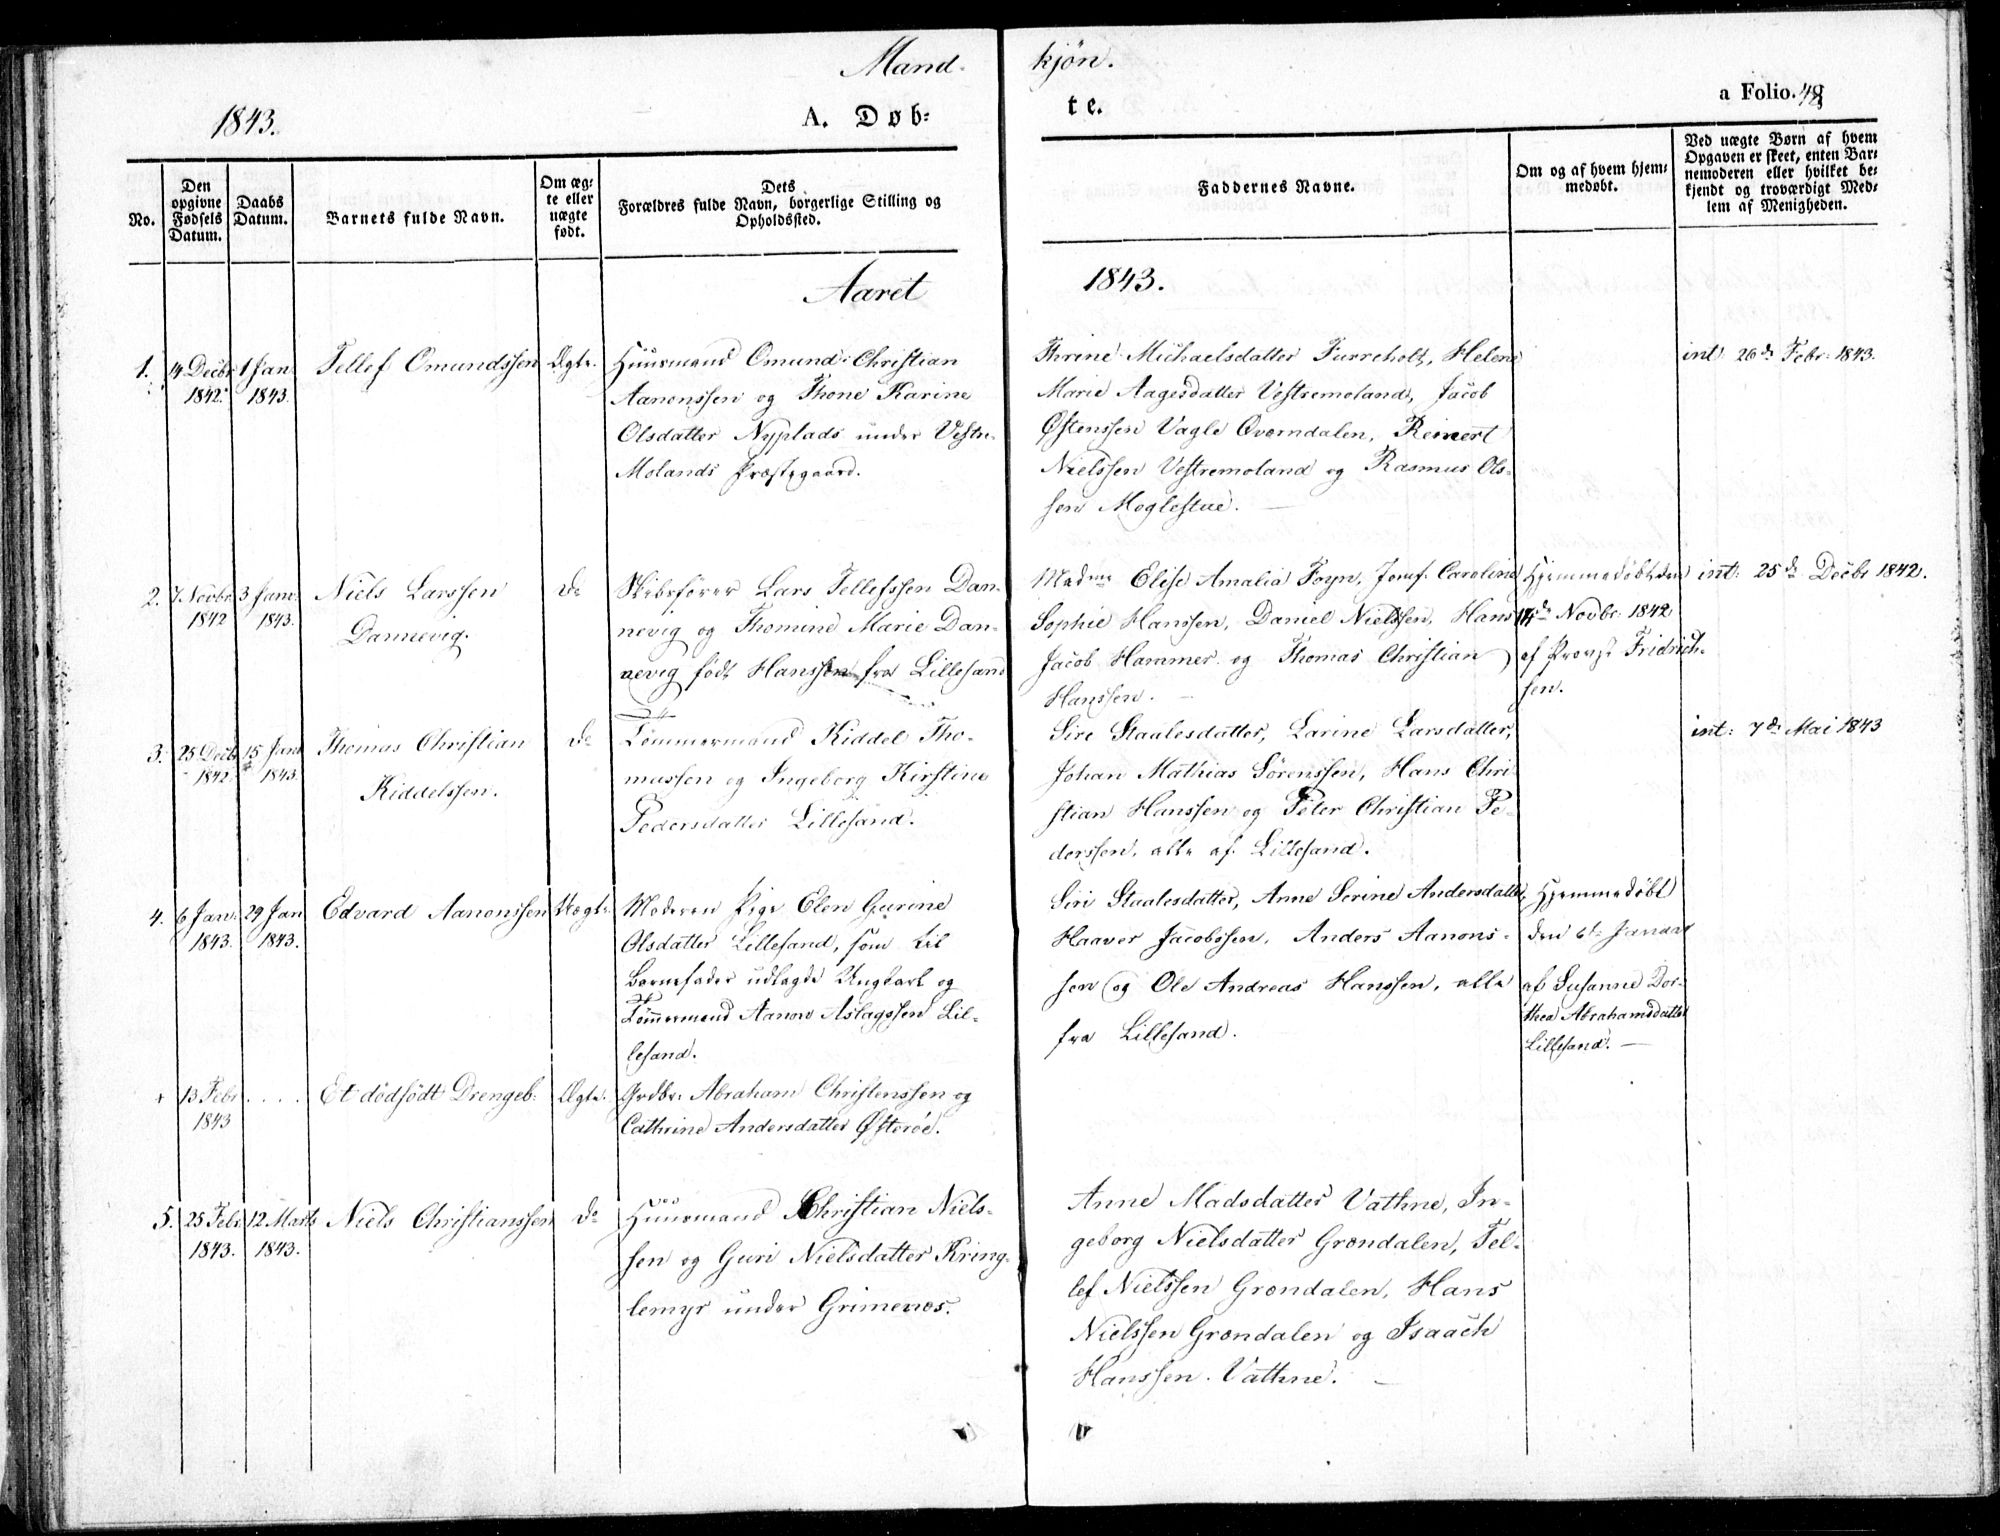 Mand- kjön.
1843.
A. Døb= te.
a Folio. 48
No.
Den
opgivne
Fødsels
Datum.
Daabs
Datum.
Barnets fulde Navn.
Om æg=
te eller
uægte
født.
Dets
Forældres fulde Navn, borgerlige Stilling og
Opholdssted.
Faddernes Navne.
Om og af hvem hjem=
medøbt.
Ved uægte Børn af hvem
Opgaven er skeet, enten Bar=
nemoderen eller hvilket be=
kjendt og troværdigt Med=
lem af Menigheden.
Aaret 1843.
1.
14 Decbr
1842.
1 Jan:
1843.
Tellef Omundssen
Ægte.
Huusmand Omund Christian
Aanonssen og Thone Karine
Olsdatter Nyplads under Vestre-
Molands Præstegaard.
Thrine Michaelsdatter Furreholt, Helene
Marie Aagesdatter Vestremoland, Jacob
Østenssen Vagle Overndalen, Reinert
Nielssen Vestremoland og Rasmus Ols-
sen Moglestue.
int: 26de Febr: 1843.
2.
7 Novbr
1842
3 Jan:
1843.
Niels Larssen
Dannevig.
do
Skibsfører Lars Tellefssen Dan-
nevig og Thomine Marie Dan-
nevig født Hanssen fra Lillesand
Madme Elise Amalia Foyn, Jomf. Caroline
Sophie Hanssen, Daniel Nielssen, Hans
Jacob Hammer og Thomas Christian
Hanssen.
Hjemmedøbt den
14de Novbr: 1842
af Provst Fridrich-
sen.
int: 25de Decbr 1842.
3.
25 Decbr
1842.
15 Jan
1843.
Thomas Christian
Kiddelssen.
do
Tømmermand Kiddel Tho-
mussen og Ingeborg Kirstine
Pedersdatter Lillesand.
Sire Staalesdatter, Larine Larsdatter,
Johan Mathias Sörenssen, Hans Chri-
stian Hanssen og Peter Christian Pe-
derssen, alle af Lillesand.
int: 7de Mai 1843
4.
6 Jan:
1843.
29 Jan
1843.
Edvard Aanonssen
Uægte.
Moderen Pige Elen Gurine
Olsdatter Lillesand, som til
Barnefader udlagde Ungkarl og
Tømmermand Aanon Aslagssen Lil-
lesand.
Siri Staalesdatter, Anne Serine Andersdatter,
Haaver Jacobssen, Anders Aanons-
sen og Ole Andreas Hanssen, alle
fra Lillesand.
Hjemmedøbt
den 6te Januar
af Susanne Dor-
thea Abrahamsdatter
Lillesand.
+
13 Febr
1843
. . . .
Et dödfödt Drengeb:
Ægte.
Grdbr: Abraham Christenssen og
Cathrine Andersdatter Østeröe.
5.
25 Febr
1843.
12 Marts
1843.
Niels Christianssen
do
Huusmand Christian Niels-
sen og Guri Nielsdatter Kring-
lemyr under Grimenes.
Anne Madsdatter Vathne, In-
geborg Nielsdatter Grøndalen, Tel-
lef Nielssen Grøndalen, Hans
Nielssen Grøndalen og Isaach
Hanssen Vathne.